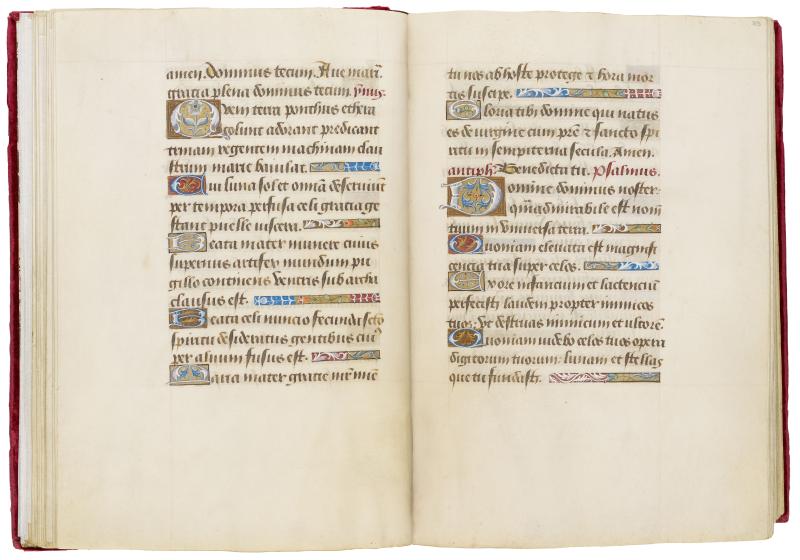 amen. Dominus tecum. Aue mari̅
gracia plena dominus tecum. ymnus
Quem terra ponthus ethera
colunt adorant predicant
ternam regentem machinam clau
strum marie baiulat.
Cui luna sol et omnia deseruiunt
per tempora perfusa celi gracia ge
stant puelle uiscera.
Beata mater munere cuius
supernus artifex mundum pu
gillo continens uentris sub archa
clausus est.
Beata celi nuncio fecunda scto
spiritu desideratus gentibus cui9
per aluum fusus est.
Maria mater gracie mr̅ mie
tu nos ab hoste protege & hora mor
tis suscipe.
Gloria tibi domine qui natus
es de uirgine cum pr̅e & sancto spi
ritu in sempiterna secula. Amen.
antiph̅. Benedicta tu. psalmus.
Domine dominus noster
qm̅ admirabile est nom̅
tuum in vniuersa terra.
Quoniam eleuata est magnifi
cencia tua super celos.
Ex ore infancium et lactenciu̅
perfecisti laudem propter inimicos
tuos. vt destruas inimicum et vltore̅
Quoniam uidebo celos tuos opera
digitorum tuorum lunam et stellas
que tu fundasti.